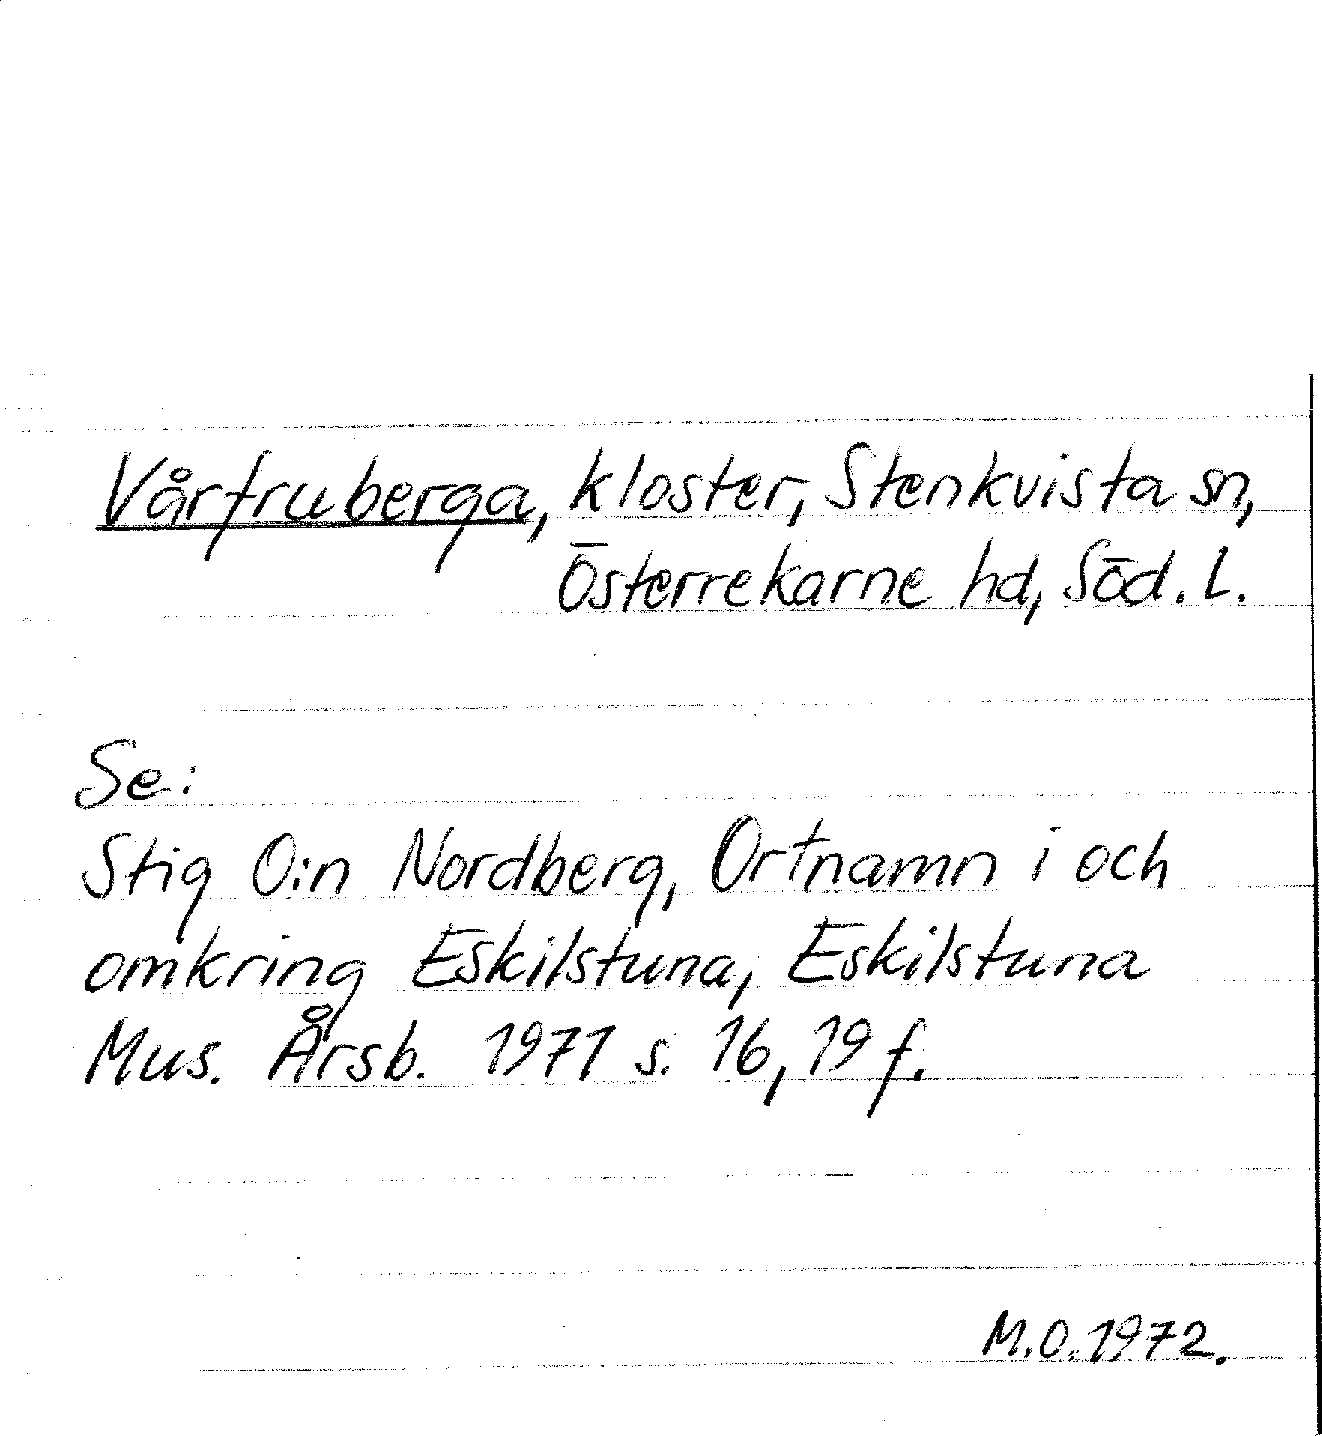 Vårfruberga, kloster, Stenkvista sn,
Österrekarne hd, Söd. L.
Se:
Stig O:n Nordberg, Ortnamn i och
omkring Eskilstuna, Eskilstuna
Mus. Årsb. 1971 s. 16, 19 f.
M.O. 1972.